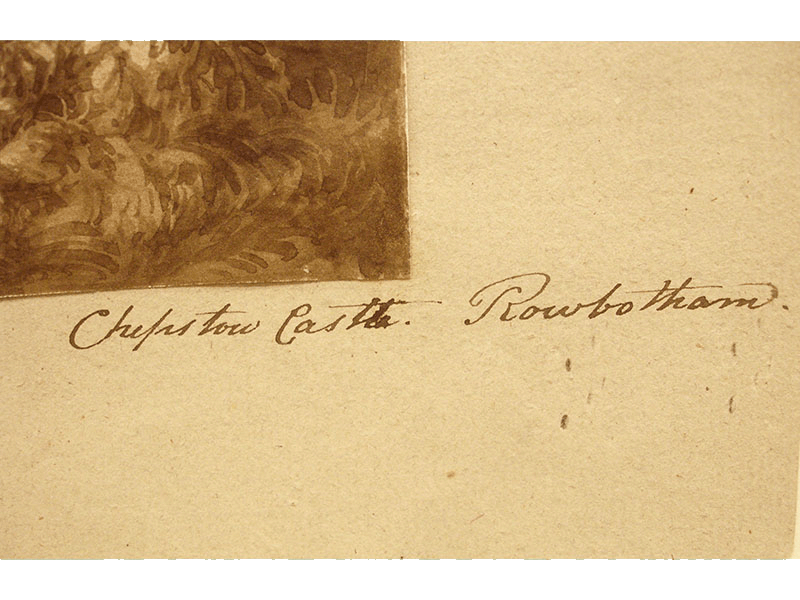 Chepstow Castle. Rowbotham.